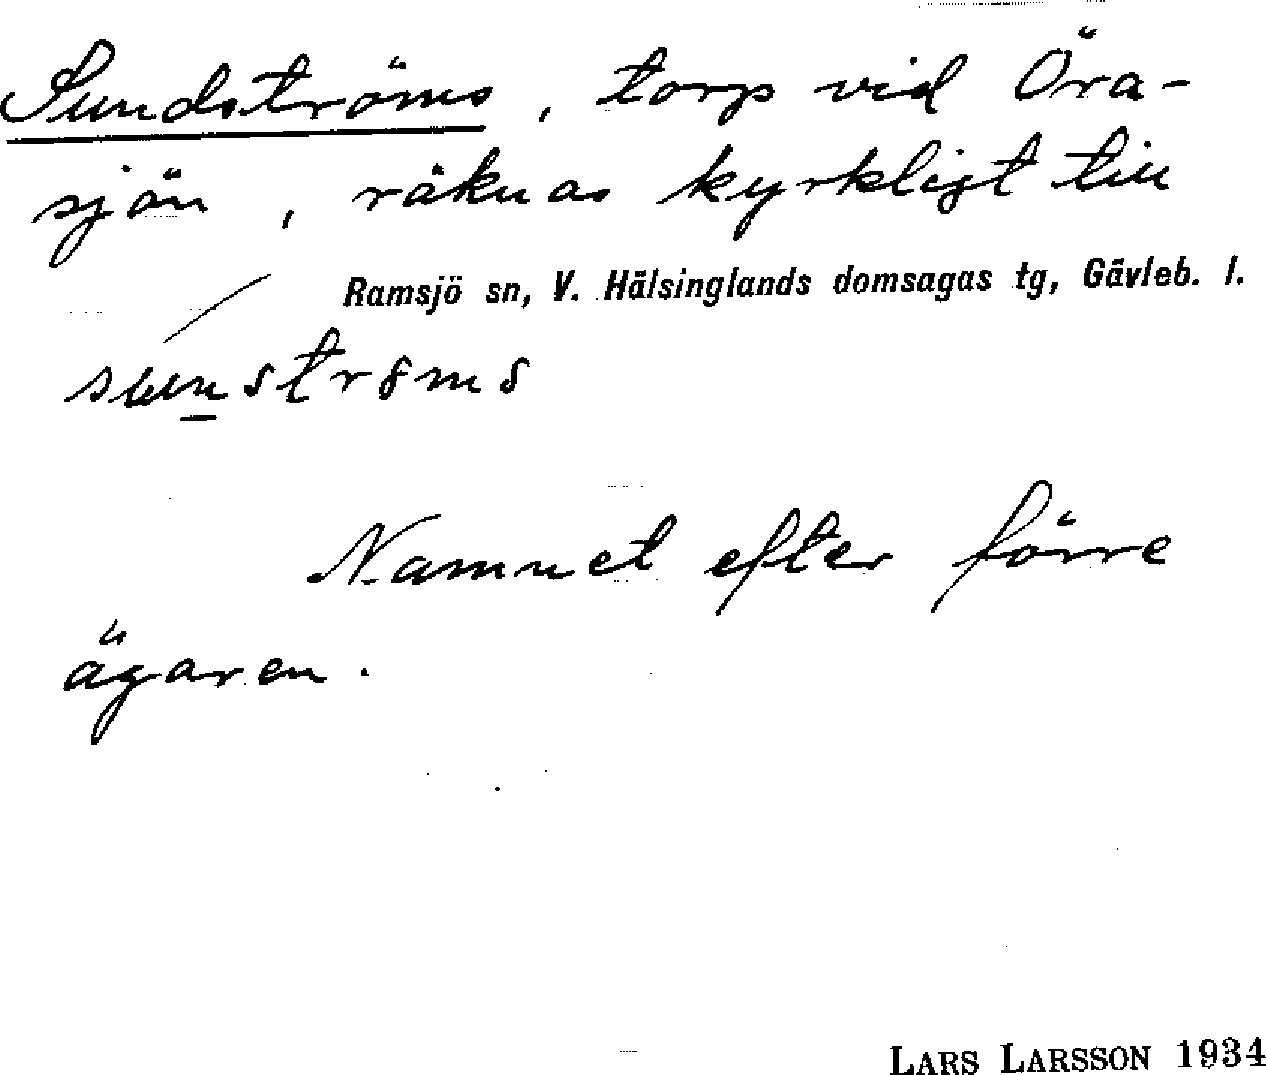 Sundströms, torp vid Öra-
sjön, räknas kyrkligt till
Ramsjö sn, V. Hälsinglands domsagas tg, Gävleb. l.
Namnet efter förre
ägaren.
LARS LARSSON 1934